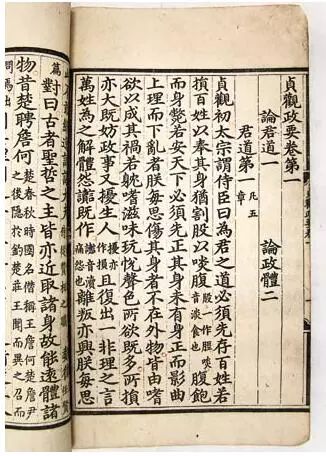 貞觀政要卷第一
論君道一　論政體二
君道第一 凡五章
貞觀初太宗謂侍臣曰為君之道必須先存百姓若
損百姓以奉其身猶割股以啖腹 股一作脛啖音淡食也 腹飽
而身斃若安天下必須先正其身未有身正而影曲
上理而下亂者朕每思傷其身者不在外物皆由嗜
欲以成其禍若躭嗜滋味玩悅聲色所欲既多所損
亦大既妨政事又擾生人 擾亦作損 且復出一非理之言
萬姓為之解體怨讟既作 讟音瀆痛怨也 離叛亦興朕每思
篇 對曰古者聖哲之主皆亦近取諸身故能遠體諸
物昔楚聘詹何 楚春秋時國名僭稱王詹何詹尹之後隱於釣楚莊王聞而異之召而